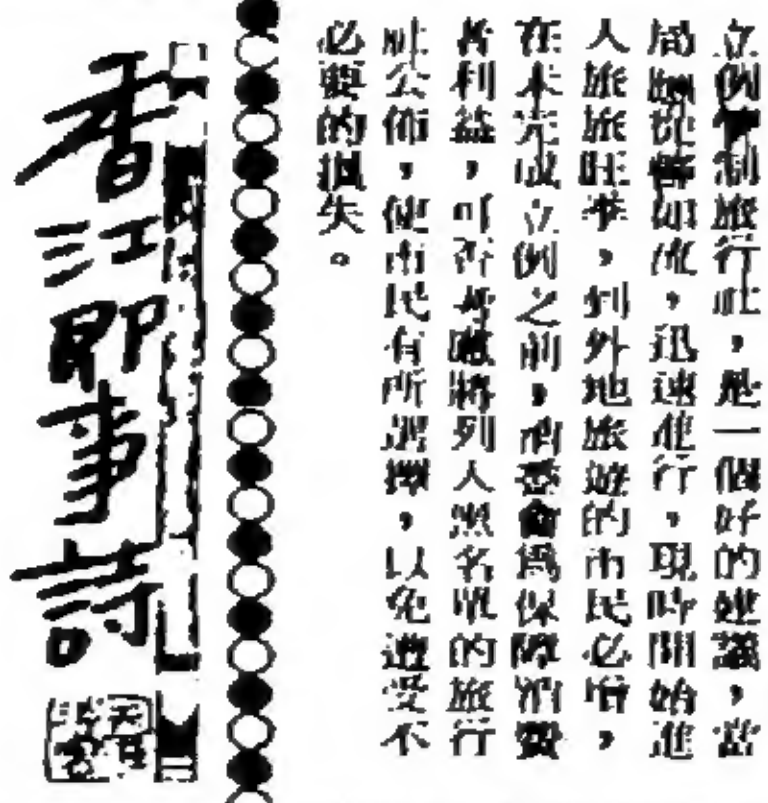 立例管制旅行社，是一個好的建議，當
局應從善如流，迅速進行，現時開始進
入旅旅旺季，到外地旅遊的市民必增，
在未完成立例之前，消委會為保障消費
者利益，可否考慮將列入黑名單的旅行
社公佈，使市民有所選擇，以免遭受不
必要的損失。
香江即事詩